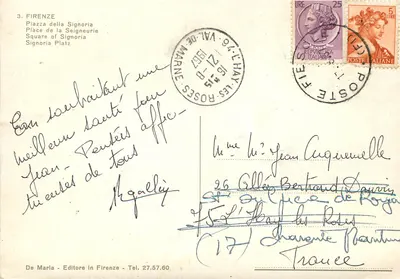 3. FIRENZE
Piazza della Signoria
Place de la Seigneurie
Square of Signoria
Signoria Platz
L'HAY-LES-ROSES
VAL-DE-MARNE
1967
LIRE 25
POSTE FIESOLE
En souhaitant une
meilleure santé pour
Jean - Pensées affec-
tueuses de tous
Mme Mr Jean
26 Allée Bertrand
St
de Royan
L'Hay les Roses
(17) Charente Maritime
France
De Maria - Editore in Firenze - Tel. 27.57.60